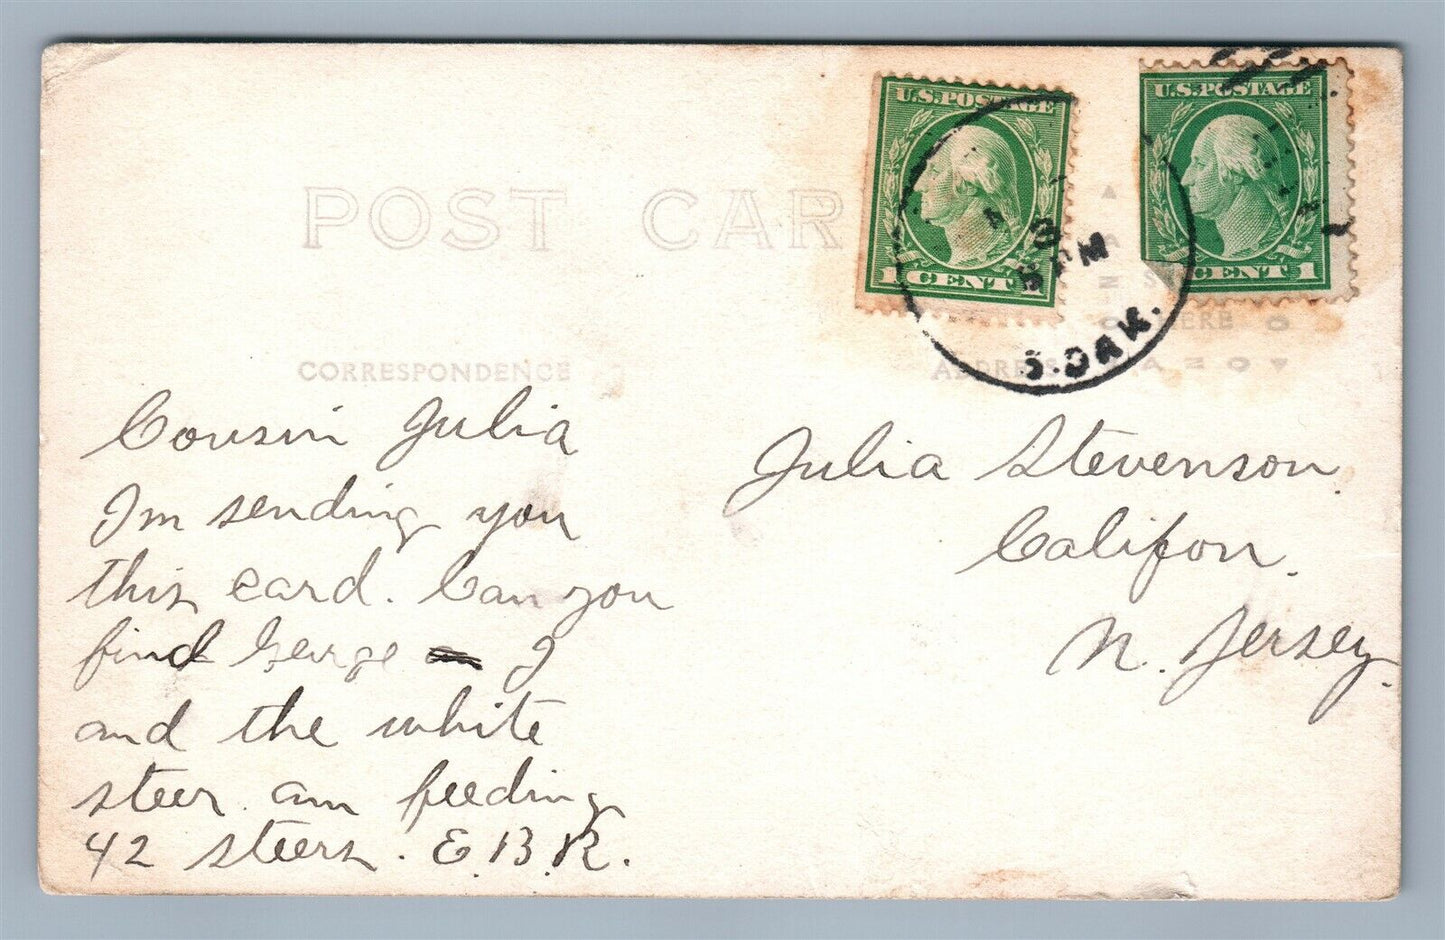 U.S.POSTAGE
1 CENT 1
U.S.POSTAGE
CENT 1
3
PM
S.DAK.
POST CAR
CORRESPONDENCE
ADDRESS
Cousin Julia
Im sending you
this card. Can you
find George I
and the white
steer. am feeding
42 steers. E.B.R.
Julia Stevenson.
Califon.
N. Jersey.